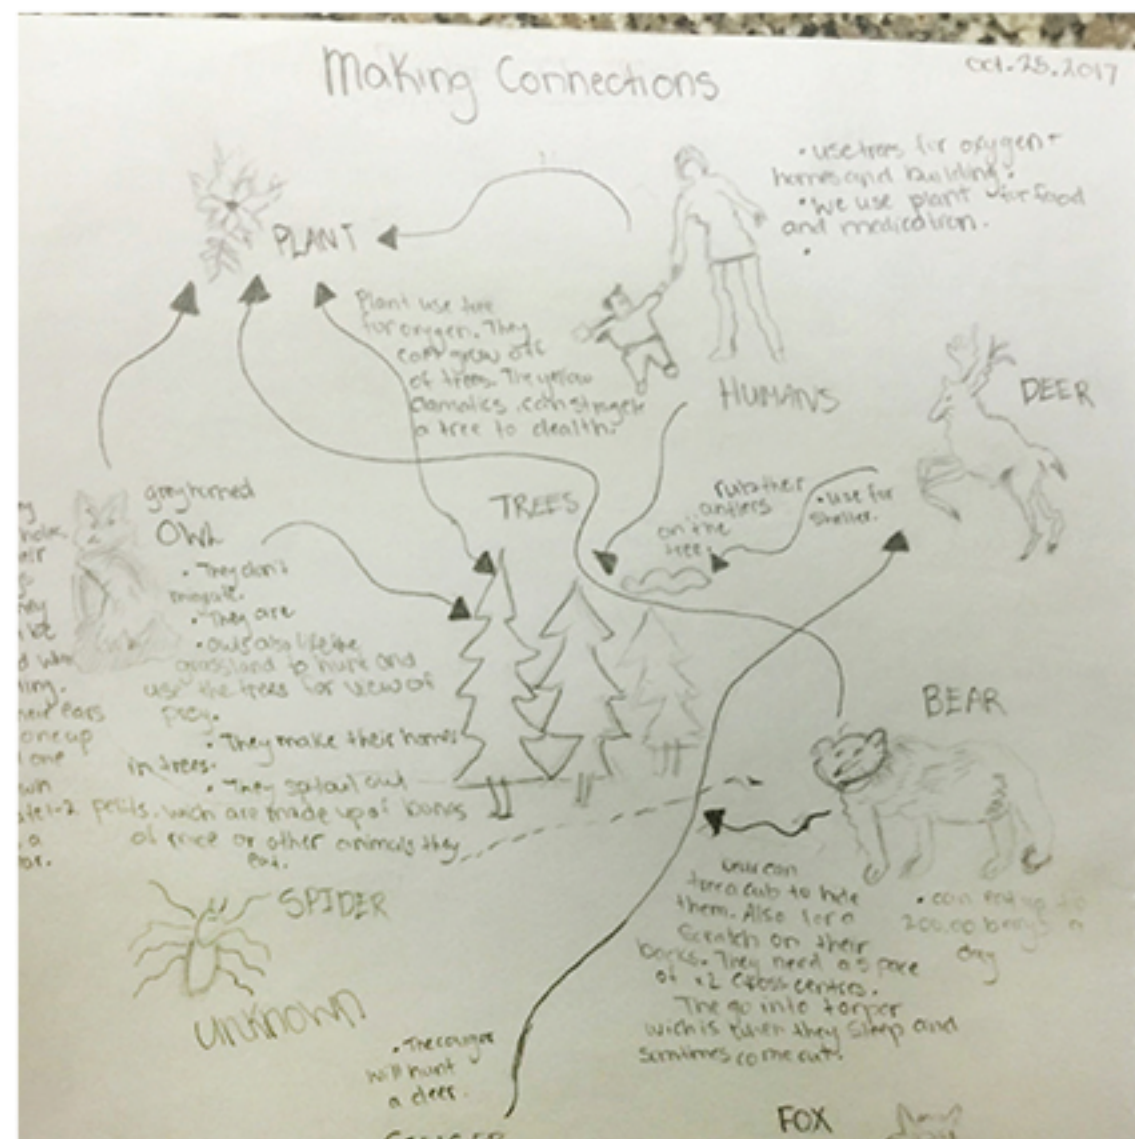 Making Connections
Oct. 25. 2017
• use trees for oxygen +
homes and building.
• We use plant for food
and medication.
•
PLANT
Plant use tree
for oxygen. They
can grow off
of trees. The yellow
a tree to death.
HUMANS
DEER
TREES
rub ther
antlers
on the
tree
• use for
shelter.
grey horned
OWL
• They don't
migrate.
• They are
• owls also like the
grassland to hunt and
use the trees for view of
prey.
• They make their homes
in trees.
• They owl
wich are made up of bones
of mice or other animals they
eat.
ears
one up
one
a
BEAR
• can eat up to
200.00 berrys a
day
can
tree a cub to hide
them. Also for a
scratch on their
backs. They need a space
of
The go into torpor
wich is when they sleep and
somtimes come out.
SPIDER
unknown
• The cougar
will hunt
a deer.
COUGER
FOX